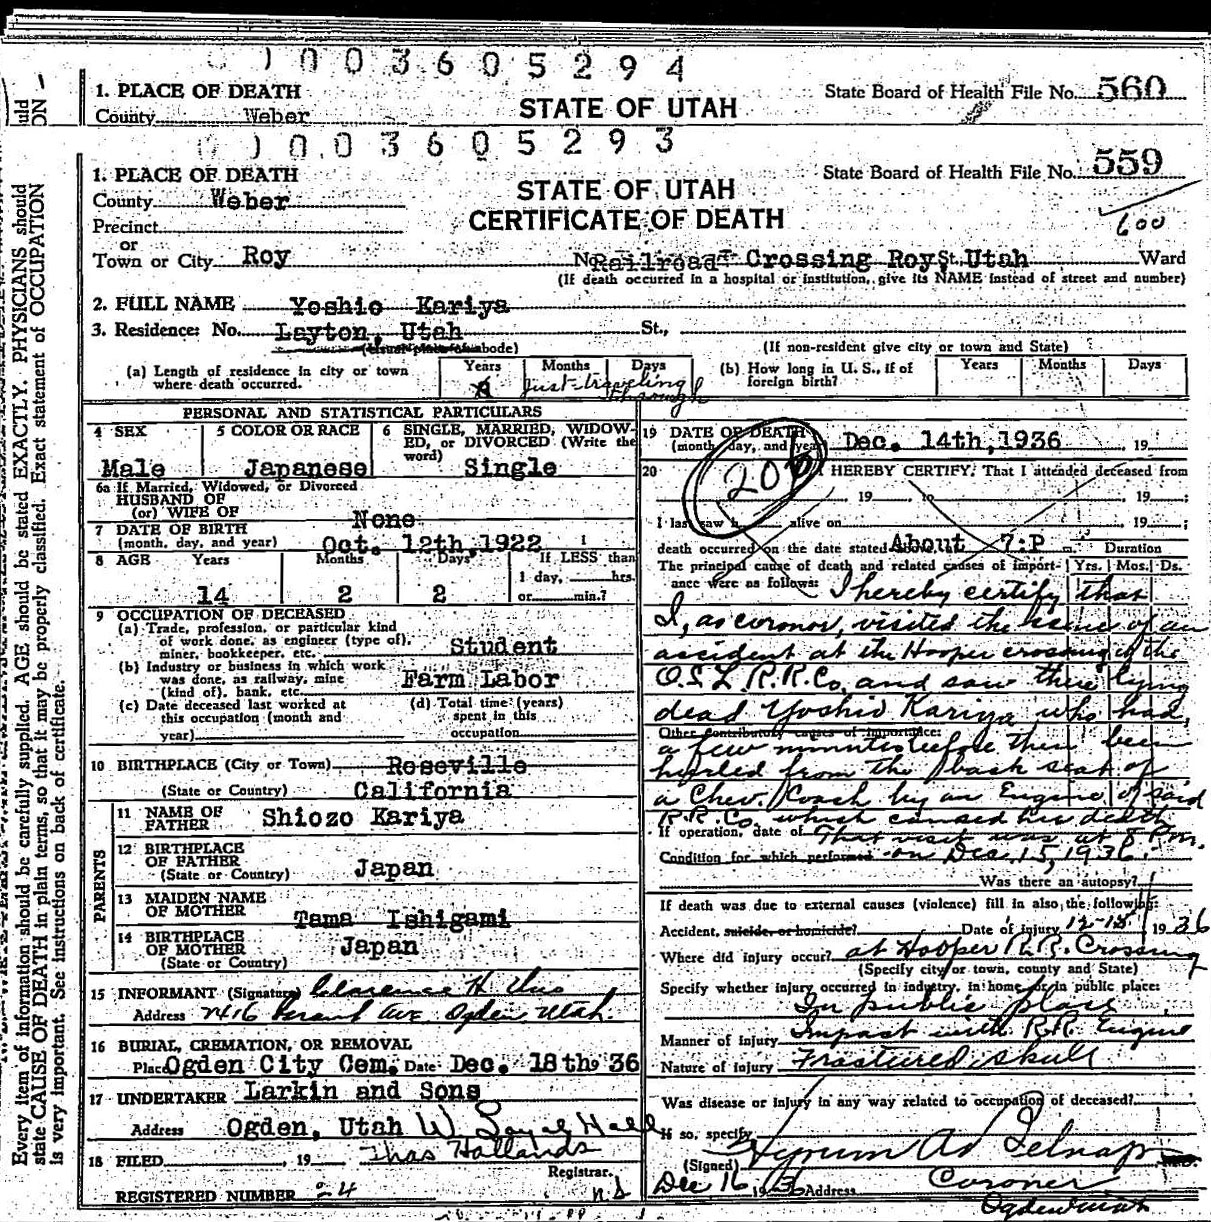 003605294
1. PLACE OF DEATH
County Weber
STATE OF UTAH
State Board of Health File No. 560
003605293
1. PLACE OF DEATH
County Weber
Precinct
or
Town or City Roy
STATE OF UTAH
CERTIFICATE OF DEATH
State Board of Health File No. 559
600
No. Railroad Crossing Roy St. Utah Ward
(If death occurred in a hospital or institution, give its NAME instead of street and number)
2. FULL NAME Yoshio Kariya
3. Residence: No. Layton, Utah St.,
(Usual place of abode)
(If non-resident give city or town and State)
(a) Length of residence in city or town where death occurred.
Years Months Days
Just traveling through
(b) How long in U. S., if of foreign birth?
Years Months Days
PERSONAL AND STATISTICAL PARTICULARS
4 SEX
Male
5 COLOR OR RACE
Japanese
6 SINGLE, MARRIED, WIDOWED, or DIVORCED (Write the word)
Single
6a If Married, Widowed, or Divorced
HUSBAND OF
(or) WIFE OF
None
7 DATE OF BIRTH
(month, day, and year) Oct. 12th, 1922
8 AGE Years Months Days If LESS than
1 day, hrs.
14 2 2 or min.?
9 OCCUPATION OF DECEASED
(a) Trade, profession, or particular kind
of work done, as engineer (type of),
miner, bookkeeper, etc. Student
(b) Industry or business in which work
was done, as railway, mine
(kind of), bank, etc. Farm Labor
(c) Date deceased last worked at
this occupation (month and
year)
(d) Total time (years)
spent in this
occupation
10 BIRTHPLACE (City or Town) Roseville
(State or Country) California
PARENTS
11 NAME OF
FATHER Shiozo Kariya
12 BIRTHPLACE
OF FATHER
(State or Country) Japan
13 MAIDEN NAME
OF MOTHER Tama Ishigami
14 BIRTHPLACE
OF MOTHER Japan
(State or Country)
15 INFORMANT (Signature) Clarence H.
Address 2416 Ave. Ogden Utah.
16 BURIAL, CREMATION, OR REMOVAL
Place Ogden City Cem. Date Dec. 18th 1936
17 UNDERTAKER Larkin and Sons
Address Ogden, Utah W
18 FILED , 19 Thos Hollands
Registrar.
REGISTERED NUMBER 24
19 DATE OF DEATH
(month, day, and year) Dec. 14th, 1936 , 19
20 I HEREBY CERTIFY, That I attended deceased from
, 19 to , 19 ;
I last saw h alive on , 19 ;
death occurred on the date stated above, at About 7:P m. Duration
The principal cause of death and related causes of importance were as follows: Yrs. Mos. Ds.
I hereby certify that
I, as coronor, visited the scene of an
accident at the Hooper crossing of the
O.S.L. R.R. Co. and saw there lying
dead Yoshio Kariya who had,
Other contributory causes of importance:
a few minutes before then been
hurled from the back seat of
a Chev. Coach by an Engine of said
R.R. Co. which caused his death
If operation, date of That visit was at 8 P.m.
Condition for which performed on Dec. 15, 1936.
Was there an autopsy?
If death was due to external causes (violence) fill in also the following:
Accident, suicide, or homicide? Date of injury 12-15 1936
Where did injury occur? at Hooper R.R. Crossing
(Specify city or town, county and State)
Specify whether injury occurred in industry, in home, or in public place:
In public place
Manner of Injury Impact with R.R. Engine
Nature of Injury Fractured skull
Was disease or injury in any way related to occupation of deceased?
If so, specify
(Signed) Hyrum A. Belnap M.D.
Dec 16 1936 Address Coroner
Ogden Utah
Every item of information should be carefully supplied. AGE should be stated EXACTLY. PHYSICIANS should
state CAUSE OF DEATH in plain terms, so that it may be properly classified. Exact statement of OCCUPATION
is very important. See instructions on back of certificate.